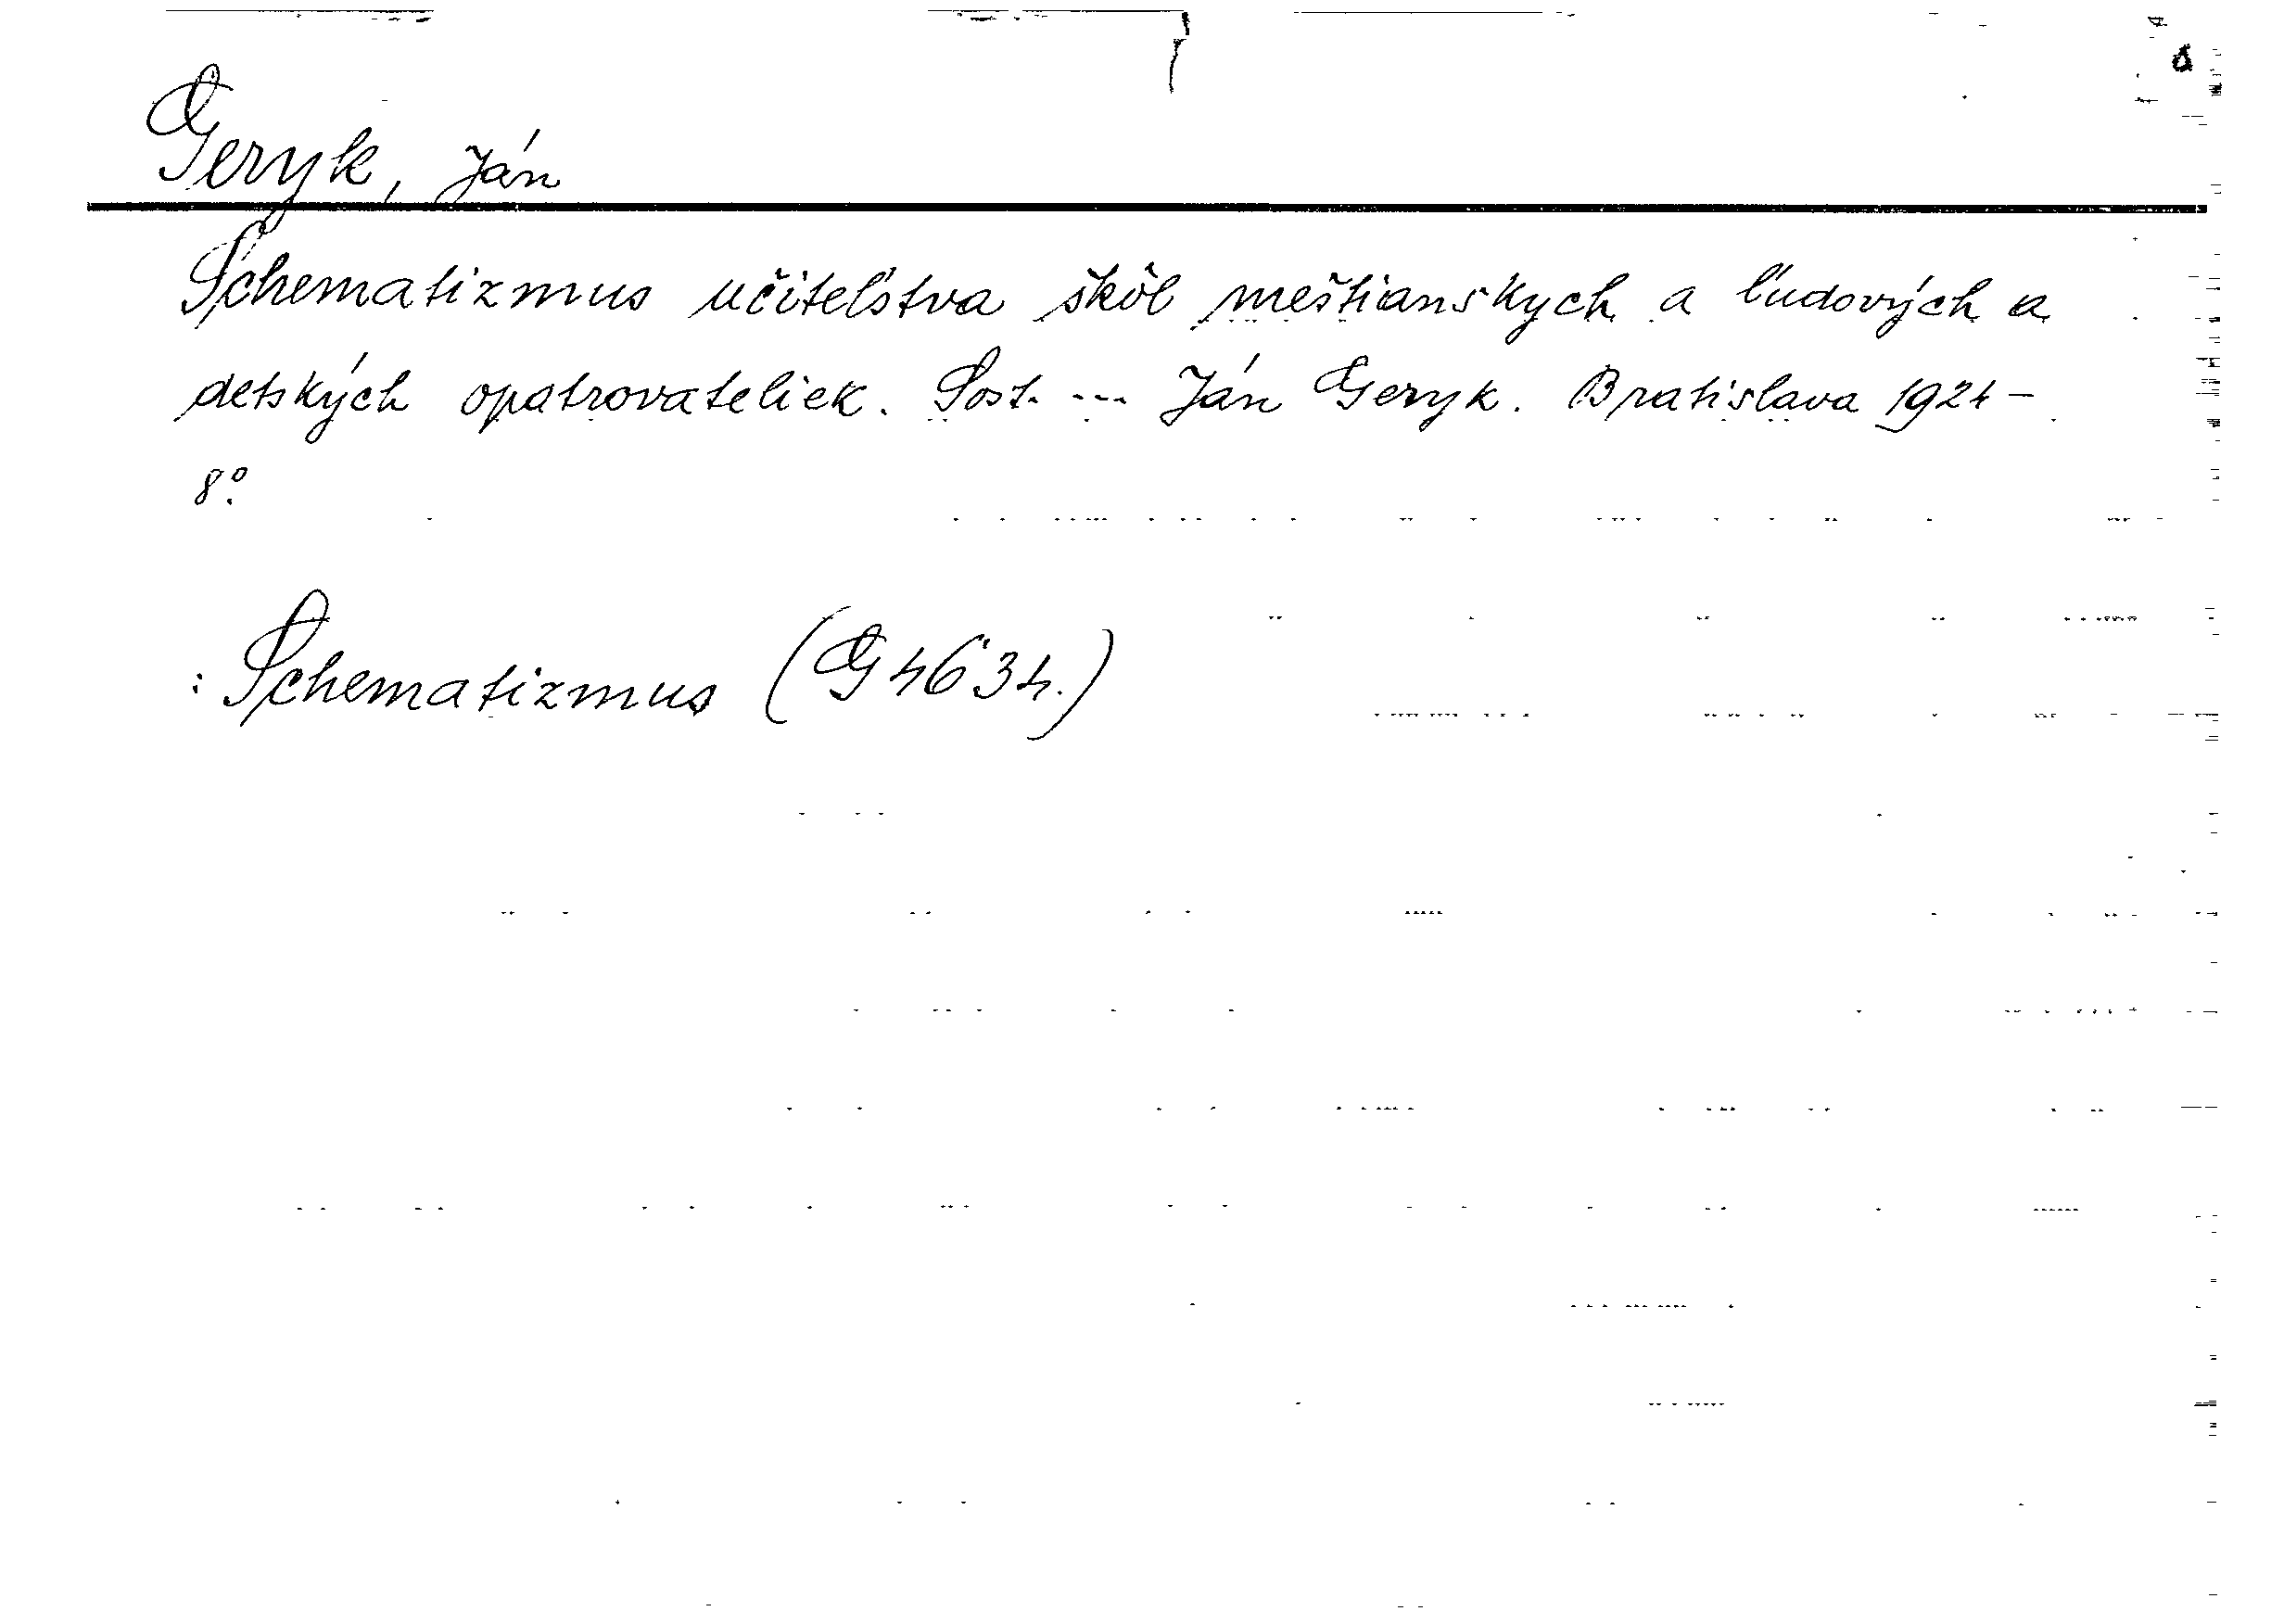 Geryk, Ján
Schematizmus učiteľstva škôl meštianskych a ľudových a
detských opatrovateliek. Sost. --- Ján Geryk. Bratislava 1924 -
8°.
: Schematizmus (G 4634.)